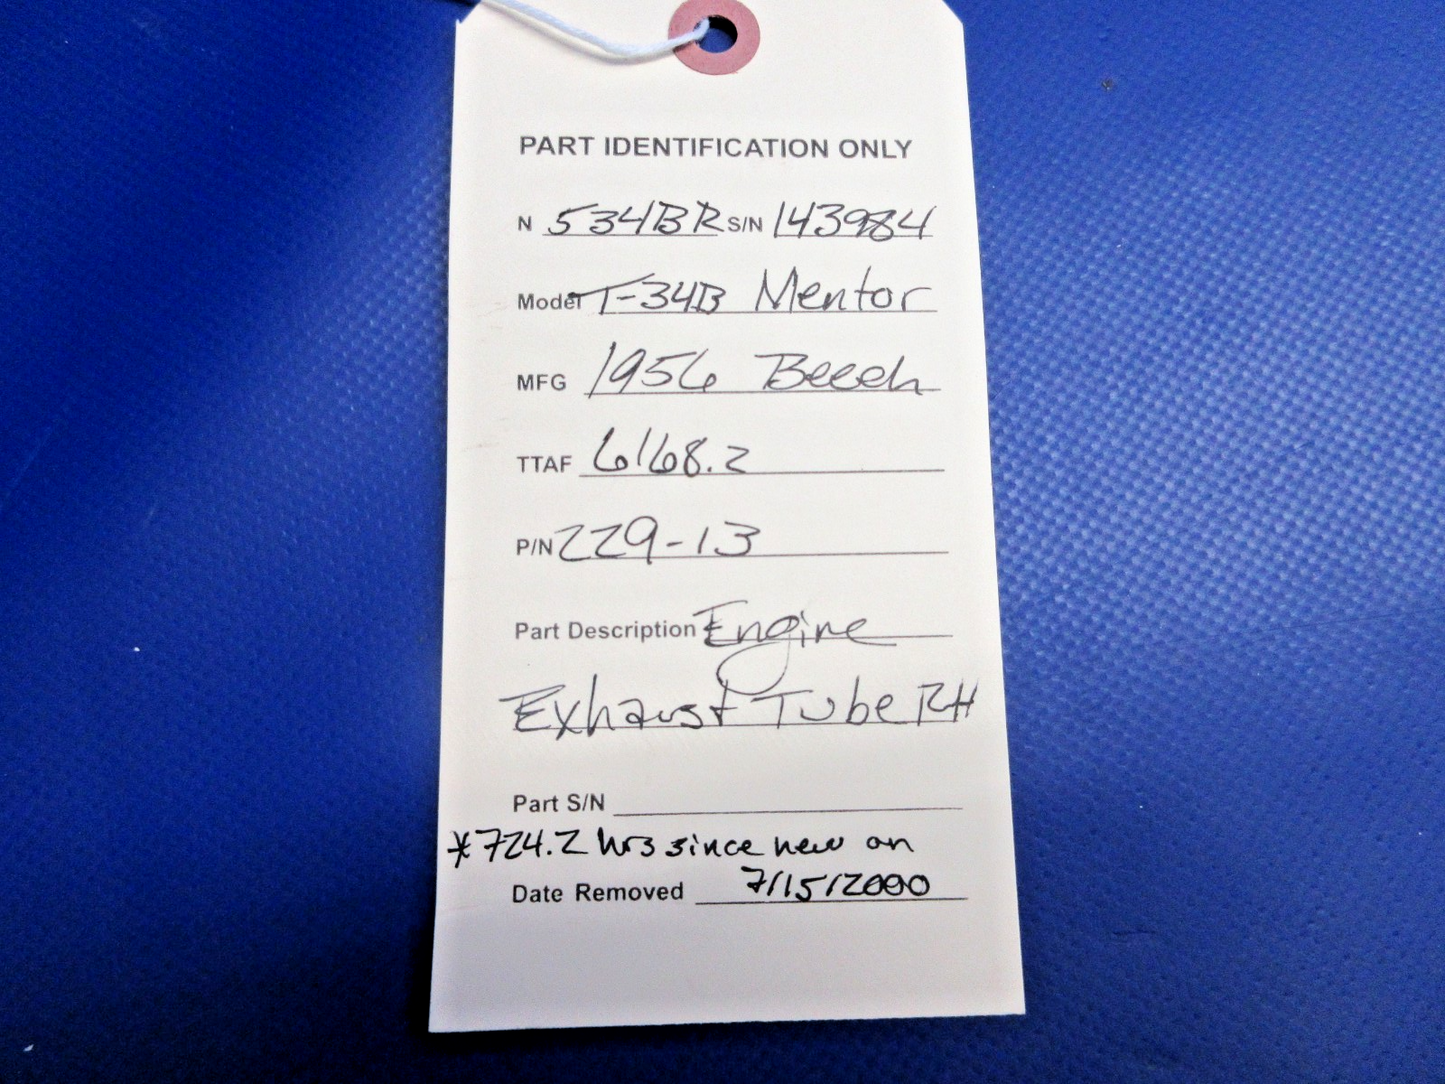 PART IDENTIFICATION ONLY
N 534BR S/N 143984
Model T-34B Mentor
MFG 1956 Beech
TTAF 6168.2
P/N 229-13
Part Description Engine
Exhaust Tube RH
Part S/N
*724.2 hrs since new on
Date Removed 7/15/2000